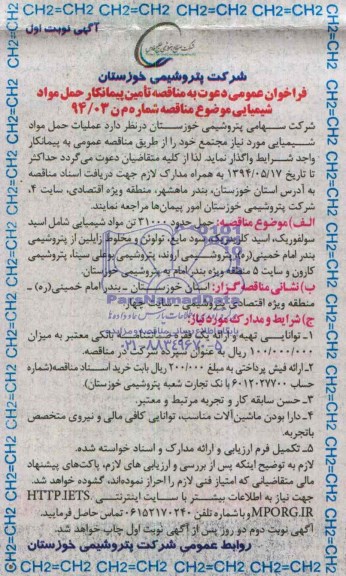 آگهی نوبت اول
شرکت پتروشیمی خوزستان
فراخوان عمومی دعوت به مناقصه تأمین پیمانکار حمل مواد
شیمیایی موضوع مناقصه شماره م ن ۹۴/۰۳
شرکت سهامی پتروشیمی خوزستان در نظر دارد عملیات حمل مواد
شیمیایی مورد نیاز مجتمع خود را از طریق مناقصه عمومی به پیمانکار
واجد شرایط واگذار نماید. لذا از کلیه متقاضیان دعوت می‌گردد حداکثر
تا تاریخ ۱۳۹۴/۰۵/۱۷ به همراه مدارک لازم جهت دریافت اسناد مناقصه
به آدرس استان خوزستان، بندر ماهشهر، منطقه ویژه اقتصادی، سایت ۴،
شرکت پتروشیمی خوزستان امور پیمان‌ها مراجعه نمایند.
الف) موضوع مناقصه: حمل حدود ۳۱۰۰۰ تن مواد شیمیایی شامل اسید
سولفوریک، اسید کلریدریک، سود مایع، تولوئن و مخلوط زایلین از پتروشیمی
بندر امام خمینی(ره)، پتروشیمی اروند، پتروشیمی بوعلی سینا، پتروشیمی
کارون و سایت ۵ منطقه ویژه بندر امام به پتروشیمی خوزستان.
ب) نشانی مناقصه گزار: استان خوزستان - بندر امام خمینی(ره) -
منطقه ویژه اقتصادی پتروشیمی - سایت چهار
ج) شرایط و مدارک مورد نیاز:
۱- توانایی تهیه و ارائه یک فقره ضمانتنامه بانکی معتبر به میزان
۱۰۰/۰۰۰/۰۰۰ ریال به عنوان سپرده شرکت در مناقصه.
۲- ارائه فیش پرداختی به مبلغ ۲۰۰/۰۰۰ ریال بابت خرید اسناد مناقصه (شماره
حساب ۶۰۱۲۰۲۷۷۰۰ بانک تجارت شعبه پتروشیمی خوزستان).
۳- حسن سابقه کار و تجربه مرتبط و معتبر.
۴- دارا بودن ماشین‌آلات مناسب، توانایی کافی مالی و نیروی متخصص
باتجربه.
۵- تکمیل فرم ارزیابی و ارائه مدارک و اسناد خواسته شده.
لازم به توضیح اینکه پس از بررسی و ارزیابی های لازم، پاکت‌های پیشنهاد
مالی متقاضیانی که امتیاز فنی لازم را احراز نموده‌اند، گشوده خواهد شد.
جهت نیاز به اطلاعات بیشتر با سایت اینترنتی HTTP.IETS.
MPORG.IR و با شماره تلفن ۰۶۱۵۲۱۷۰۲۴۰ تماس حاصل فرمایید.
آگهی نوبت دوم دو روز پس از آگهی نوبت اول چاپ خواهد شد.
روابط عمومی شرکت پتروشیمی خوزستان
CH2=CH2 CH2=CH2 CH2=CH2 CH2=CH2 CH2=CH2
ParsNamadData
۰۲۱-۸۸۳۴۹۶۷۰-۵